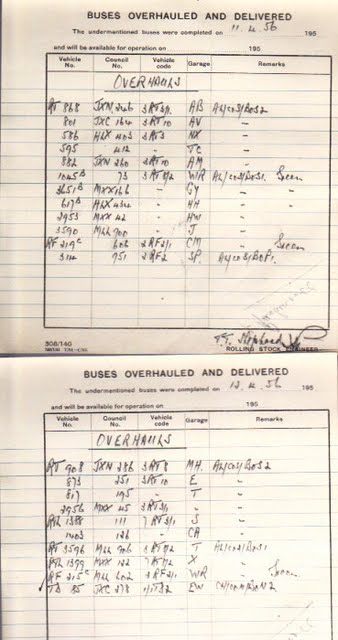 BUSES OVERHAULED AND DELIVERED
The undermentioned buses were completed on 11.4.56 195
and will be available for operation on 195
Vehicle No. Council No. Vehicle code Garage Remarks
OVERHAULS
RT 868 JXN 246 AB
801 JXC 164 3RT10 AV "
586 HLX 403 3RT3 NX "
595 " 412 " TC "
882 JXN 260 3RT10 AM "
1045B " 73 WR Green
3651B MXX 166 " GY "
617B HLX 434 " HH "
2953 MXX 42 " HW "
3590 MLL 900 " J "
RF 219C " 606 2RF2/1 CM " Green
314 " 751 2RF2 SP.
308/140
ROLLING STOCK ENGINEER
BUSES OVERHAULED AND DELIVERED
The undermentioned buses were completed on 12.4.56 195
and will be available for operation on 195
Vehicle No. Council No. Vehicle code Garage Remarks
OVERHAULS
RT 908 JXN 286 3RT8 MH.
873 " 251 3RT10 E "
817 " 195 " T "
2956 MXX 45 3RT3/1 " "
RTL 1388 " 111 7RT3/1 S "
1403 " 126 " CA "
RT 3596 MLL 906 T
RTL 1399 MXX 122 X "
RF 215C MLL 602 2RF2/1 WR " Green
TD 85 JXC 278 EW